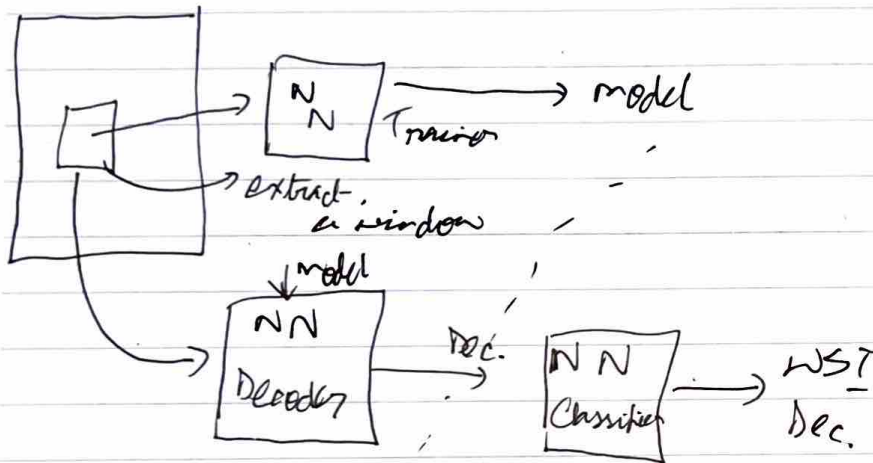 N
N
Trainer
model
extract
a window
model
NN
Decoder
Dec.
NN
Classifier
WSI
Dec.